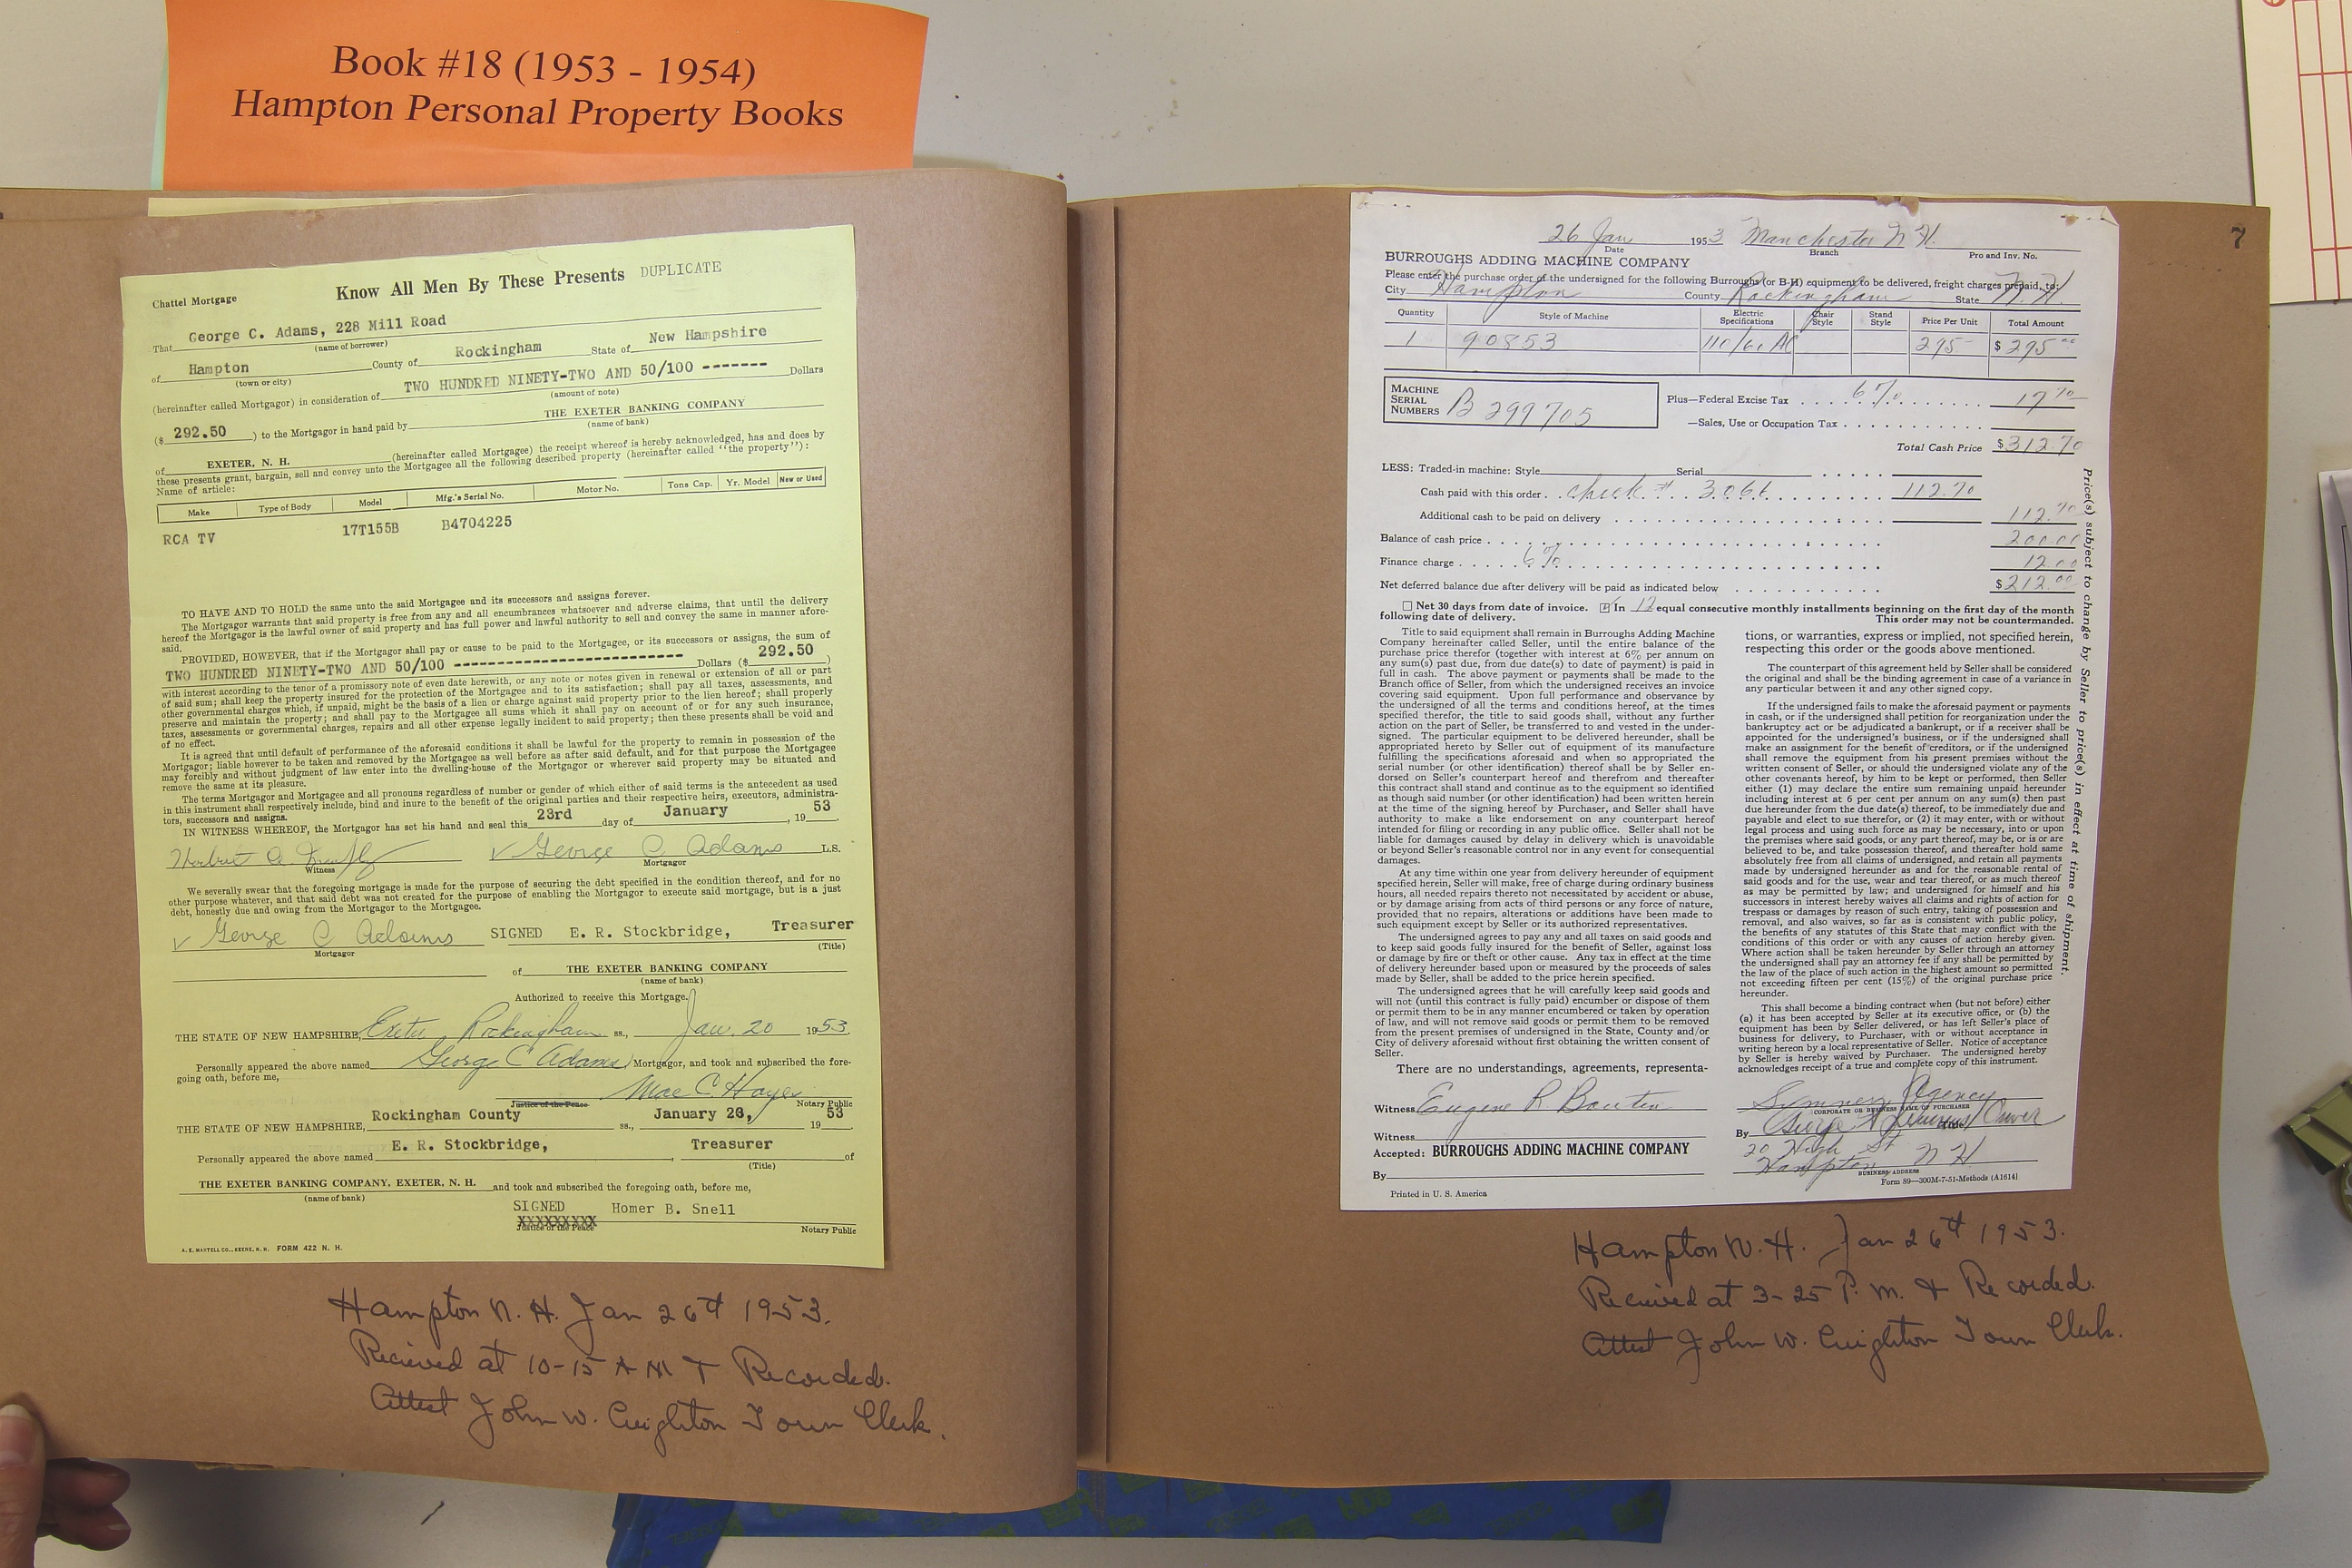 Book #18 (1953 - 1954)
Hampton Personal Property Books
Chattel Mortgage
Know All Men By These Presents DUPLICATE
That George C. Adams, 228 Mill Road
(name of borrower)
of Hampton County of Rockingham State of New Hampshire
(town or city)
(hereinafter called Mortgagor) in consideration of TWO HUNDRED NINETY-TWO AND 50/100 ------- Dollars
(amount of note)
($ 292.50 ) to the Mortgagor in hand paid by THE EXETER BANKING COMPANY
(name of bank)
of EXETER, N. H. (hereinafter called Mortgagee) the receipt whereof is hereby acknowledged, has and does by
these presents grant, bargain, sell and convey unto the Mortgagee all the following described property (hereinafter called "the property"):
Name of article:
Make Type of Body Model Mfg.'s Serial No. Motor No. Tons Cap. Yr. Model New or Used
RCA TV 17T155B B4704225
TO HAVE AND TO HOLD the same unto the said Mortgagee and its successors and assigns forever.
The Mortgagor warrants that said property is free from any and all encumbrances whatsoever and adverse claims, that until the delivery
hereof the Mortgagor is the lawful owner of said property and has full power and lawful authority to sell and convey the same in manner afore-
said.
PROVIDED, HOWEVER, that if the Mortgagor shall pay or cause to be paid to the Mortgagee, or its successors or assigns, the sum of
TWO HUNDRED NINETY-TWO AND 50/100 ---------------------------- Dollars ($ 292.50 )
with interest according to the tenor of a promissory note of even date herewith, or any note or notes given in renewal or extension of all or part
of said sum; shall keep the property insured for the protection of the Mortgagee and to its satisfaction; shall pay all taxes, assessments, and
other governmental charges which, if unpaid, might be the basis of a lien or charge against said property prior to the lien hereof; shall properly
preserve and maintain the property; and shall pay to the Mortgagee all sums which it shall pay on account of or for any such insurance,
taxes, assessments or governmental charges, repairs and all other expense legally incident to said property; then these presents shall be void and
of no effect.
It is agreed that until default of performance of the aforesaid conditions it shall be lawful for the property to remain in possession of the
Mortgagor; liable however to be taken and removed by the Mortgagee as well before as after said default, and for that purpose the Mortgagee
may forcibly and without judgment of law enter into the dwelling-house of the Mortgagor or wherever said property may be situated and
remove the same at its pleasure.
The terms Mortgagor and Mortgagee and all pronouns regardless of number or gender of which either of said terms is the antecedent as used
in this instrument shall respectively include, bind and inure to the benefit of the original parties and their respective heirs, executors, administra-
tors, successors and assigns.
IN WITNESS WHEREOF, the Mortgagor has set his hand and seal this 23rd day of January , 19 53
George C Adams L.S.
Witness Mortgagor
We severally swear that the foregoing mortgage is made for the purpose of securing the debt specified in the condition thereof, and for no
other purpose whatever, and that said debt was not created for the purpose of enabling the Mortgagor to execute said mortgage, but is a just
debt, honestly due and owing from the Mortgagor to the Mortgagee.
George C Adams SIGNED E. R. Stockbridge, Treasurer
Mortgagor (Title)
of THE EXETER BANKING COMPANY
(name of bank)
Authorized to receive this Mortgage.
THE STATE OF NEW HAMPSHIRE, Exeter Rockingham ss., Jan. 20 1953
Personally appeared the above named George C Adams, Mortgagor, and took and subscribed the fore-
going oath, before me,
Mae C. Hayes
Justice of the Peace Notary Public
THE STATE OF NEW HAMPSHIRE, Rockingham County ss., January 20, 19 53
Personally appeared the above named E. R. Stockbridge, , Treasurer of
(Title)
THE EXETER BANKING COMPANY, EXETER, N. H. and took and subscribed the foregoing oath, before me,
(name of bank)
SIGNED Homer B. Snell
XXXXXXXXX
Justice of the Peace Notary Public
A. E. MARTELL CO., KEENE, N. H. FORM 422 N. H.
Hampton N. H. Jan 26th 1953.
Recieved at 10-15 A M & Recorded.
Attest John W. Creighton Town Clerk.
7
26 Jan 1953 Manchester N H.
Date Branch Pro and Inv. No.
BURROUGHS ADDING MACHINE COMPANY
Please enter the purchase order of the undersigned for the following Burroughs (or B-H) equipment to be delivered, freight charges prepaid, to:
City Hampton County Rockingham State N. H.
Quantity Style of Machine Electric Specifications Chair Style Stand Style Price Per Unit Total Amount
1 90853 110/60 AC 295 - $ 295 00
MACHINE SERIAL NUMBERS B 299705
Plus—Federal Excise Tax . . . . 6% . . . . . . . 17 70
—Sales, Use or Occupation Tax . . . . . . . . . .
Total Cash Price $312.70
LESS: Traded-in machine: Style Serial . . . . .
Cash paid with this order . . check # . . 3066 . . . . . . . . . 112.70
Additional cash to be paid on delivery . . . . . . . . . . . . . 112.70
Balance of cash price . . . . . . . . . . . . . . . . . . . . 200.00
Finance charge . . . . . 6% . . . . . . . . . . . . . . . . 12.00
Net deferred balance due after delivery will be paid as indicated below . . . . . . . . . . . $212.00
Net 30 days from date of invoice. In 12 equal consecutive monthly installments beginning on the first day of the month
following date of delivery. This order may not be countermanded.
Title to said equipment shall remain in Burroughs Adding Machine
Company hereinafter called Seller, until the entire balance of the
purchase price therefor (together with interest at 6% per annum on
any sum(s) past due, from due date(s) to date of payment) is paid in
full in cash. The above payment or payments shall be made to the
Branch office of Seller, from which the undersigned receives an invoice
covering said equipment. Upon full performance and observance by
the undersigned of all the terms and conditions hereof, at the times
specified therefor, the title to said goods shall, without any further
action on the part of Seller, be transferred to and vested in the under-
signed. The particular equipment to be delivered hereunder, shall be
appropriated hereto by Seller out of equipment of its manufacture
fulfilling the specifications aforesaid and when so appropriated the
serial number (or other identification) thereof shall be by Seller en-
dorsed on Seller's counterpart hereof and therefrom and thereafter
this contract shall stand and continue as to the equipment so identified
as though said number (or other identification) had been written herein
at the time of the signing hereof by Purchaser, and Seller shall have
authority to make a like endorsement on any counterpart hereof
intended for filing or recording in any public office. Seller shall not be
liable for damages caused by delay in delivery which is unavoidable
or beyond Seller's reasonable control nor in any event for consequential
damages.
At any time within one year from delivery hereunder of equipment
specified herein, Seller will make, free of charge during ordinary business
hours, all needed repairs thereto not necessitated by accident or abuse,
or by damage arising from acts of third persons or any force of nature,
provided that no repairs, alterations or additions have been made to
such equipment except by Seller or its authorized representatives.
The undersigned agrees to pay any and all taxes on said goods and
to keep said goods fully insured for the benefit of Seller, against loss
or damage by fire or theft or other cause. Any tax in effect at the time
of delivery hereunder based upon or measured by the proceeds of sales
made by Seller, shall be added to the price herein specified.
The undersigned agrees that he will carefully keep said goods and
will not (until this contract is fully paid) encumber or dispose of them
or permit them to be in any manner encumbered or taken by operation
of law, and will not remove said goods or permit them to be removed
from the present premises of undersigned in the State, County and/or
City of delivery aforesaid without first obtaining the written consent of
Seller.
There are no understandings, agreements, representa-
tions, or warranties, express or implied, not specified herein,
respecting this order or the goods above mentioned.
The counterpart of this agreement held by Seller shall be considered
the original and shall be the binding agreement in case of a variance in
any particular between it and any other signed copy.
If the undersigned fails to make the aforesaid payment or payments
in cash, or if the undersigned shall petition for reorganization under the
bankruptcy act or be adjudicated a bankrupt, or if a receiver shall be
appointed for the undersigned's business, or if the undersigned shall
make an assignment for the benefit of creditors, or if the undersigned
shall remove the equipment from his present premises without the
written consent of Seller, or should the undersigned violate any of the
other covenants hereof, by him to be kept or performed, then Seller
either (1) may declare the entire sum remaining unpaid hereunder
including interest at 6 per cent per annum on any sum(s) then past
due hereunder from the due date(s) thereof, to be immediately due and
payable and elect to sue therefor, or (2) it may enter, with or without
legal process and using such force as may be necessary, into or upon
the premises where said goods, or any part thereof, may be, or is or are
believed to be, and take possession thereof, and thereafter hold same
absolutely free from all claims of undersigned, and retain all payments
made by undersigned hereunder as and for the reasonable rental of
said goods and for the use, wear and tear thereof, or as much thereof
as may be permitted by law; and undersigned for himself and his
successors in interest hereby waives all claims and rights of action for
trespass or damages by reason of such entry, taking of possession and
removal, and also waives, so far as is consistent with public policy,
the benefits of any statutes of this State that may conflict with the
conditions of this order or with any causes of action hereby given.
Where action shall be taken hereunder by Seller through an attorney
the undersigned shall pay an attorney fee if any shall be permitted by
the law of the place of such action in the highest amount so permitted
not exceeding fifteen per cent (15%) of the original purchase price
hereunder.
This shall become a binding contract when (but not before) either
(a) it has been accepted by Seller at its executive office, or (b) the
equipment has been by Seller delivered, or has left Seller's place of
business for delivery, to Purchaser, with or without acceptance in
writing hereon by a local representative of Seller. Notice of acceptance
by Seller is hereby waived by Purchaser. The undersigned hereby
acknowledges receipt of a true and complete copy of this instrument.
Price(s) subject to change by Seller to price(s) in effect at time of shipment.
Witness Eugene R
Witness
Accepted: BURROUGHS ADDING MACHINE COMPANY
By
Printed in U. S. America
Sumner Agency
CORPORATE OR BUSINESS NAME OF PURCHASER
By George Sumner Owner
20 High St
Hampton N H
BUSINESS ADDRESS
Form 89—300M-7-51-Methods (A1614)
Hampton N. H. Jan 26th 1953.
Recieved at 3-25 P. M. & Recorded.
Attest John W. Creighton Town Clerk.